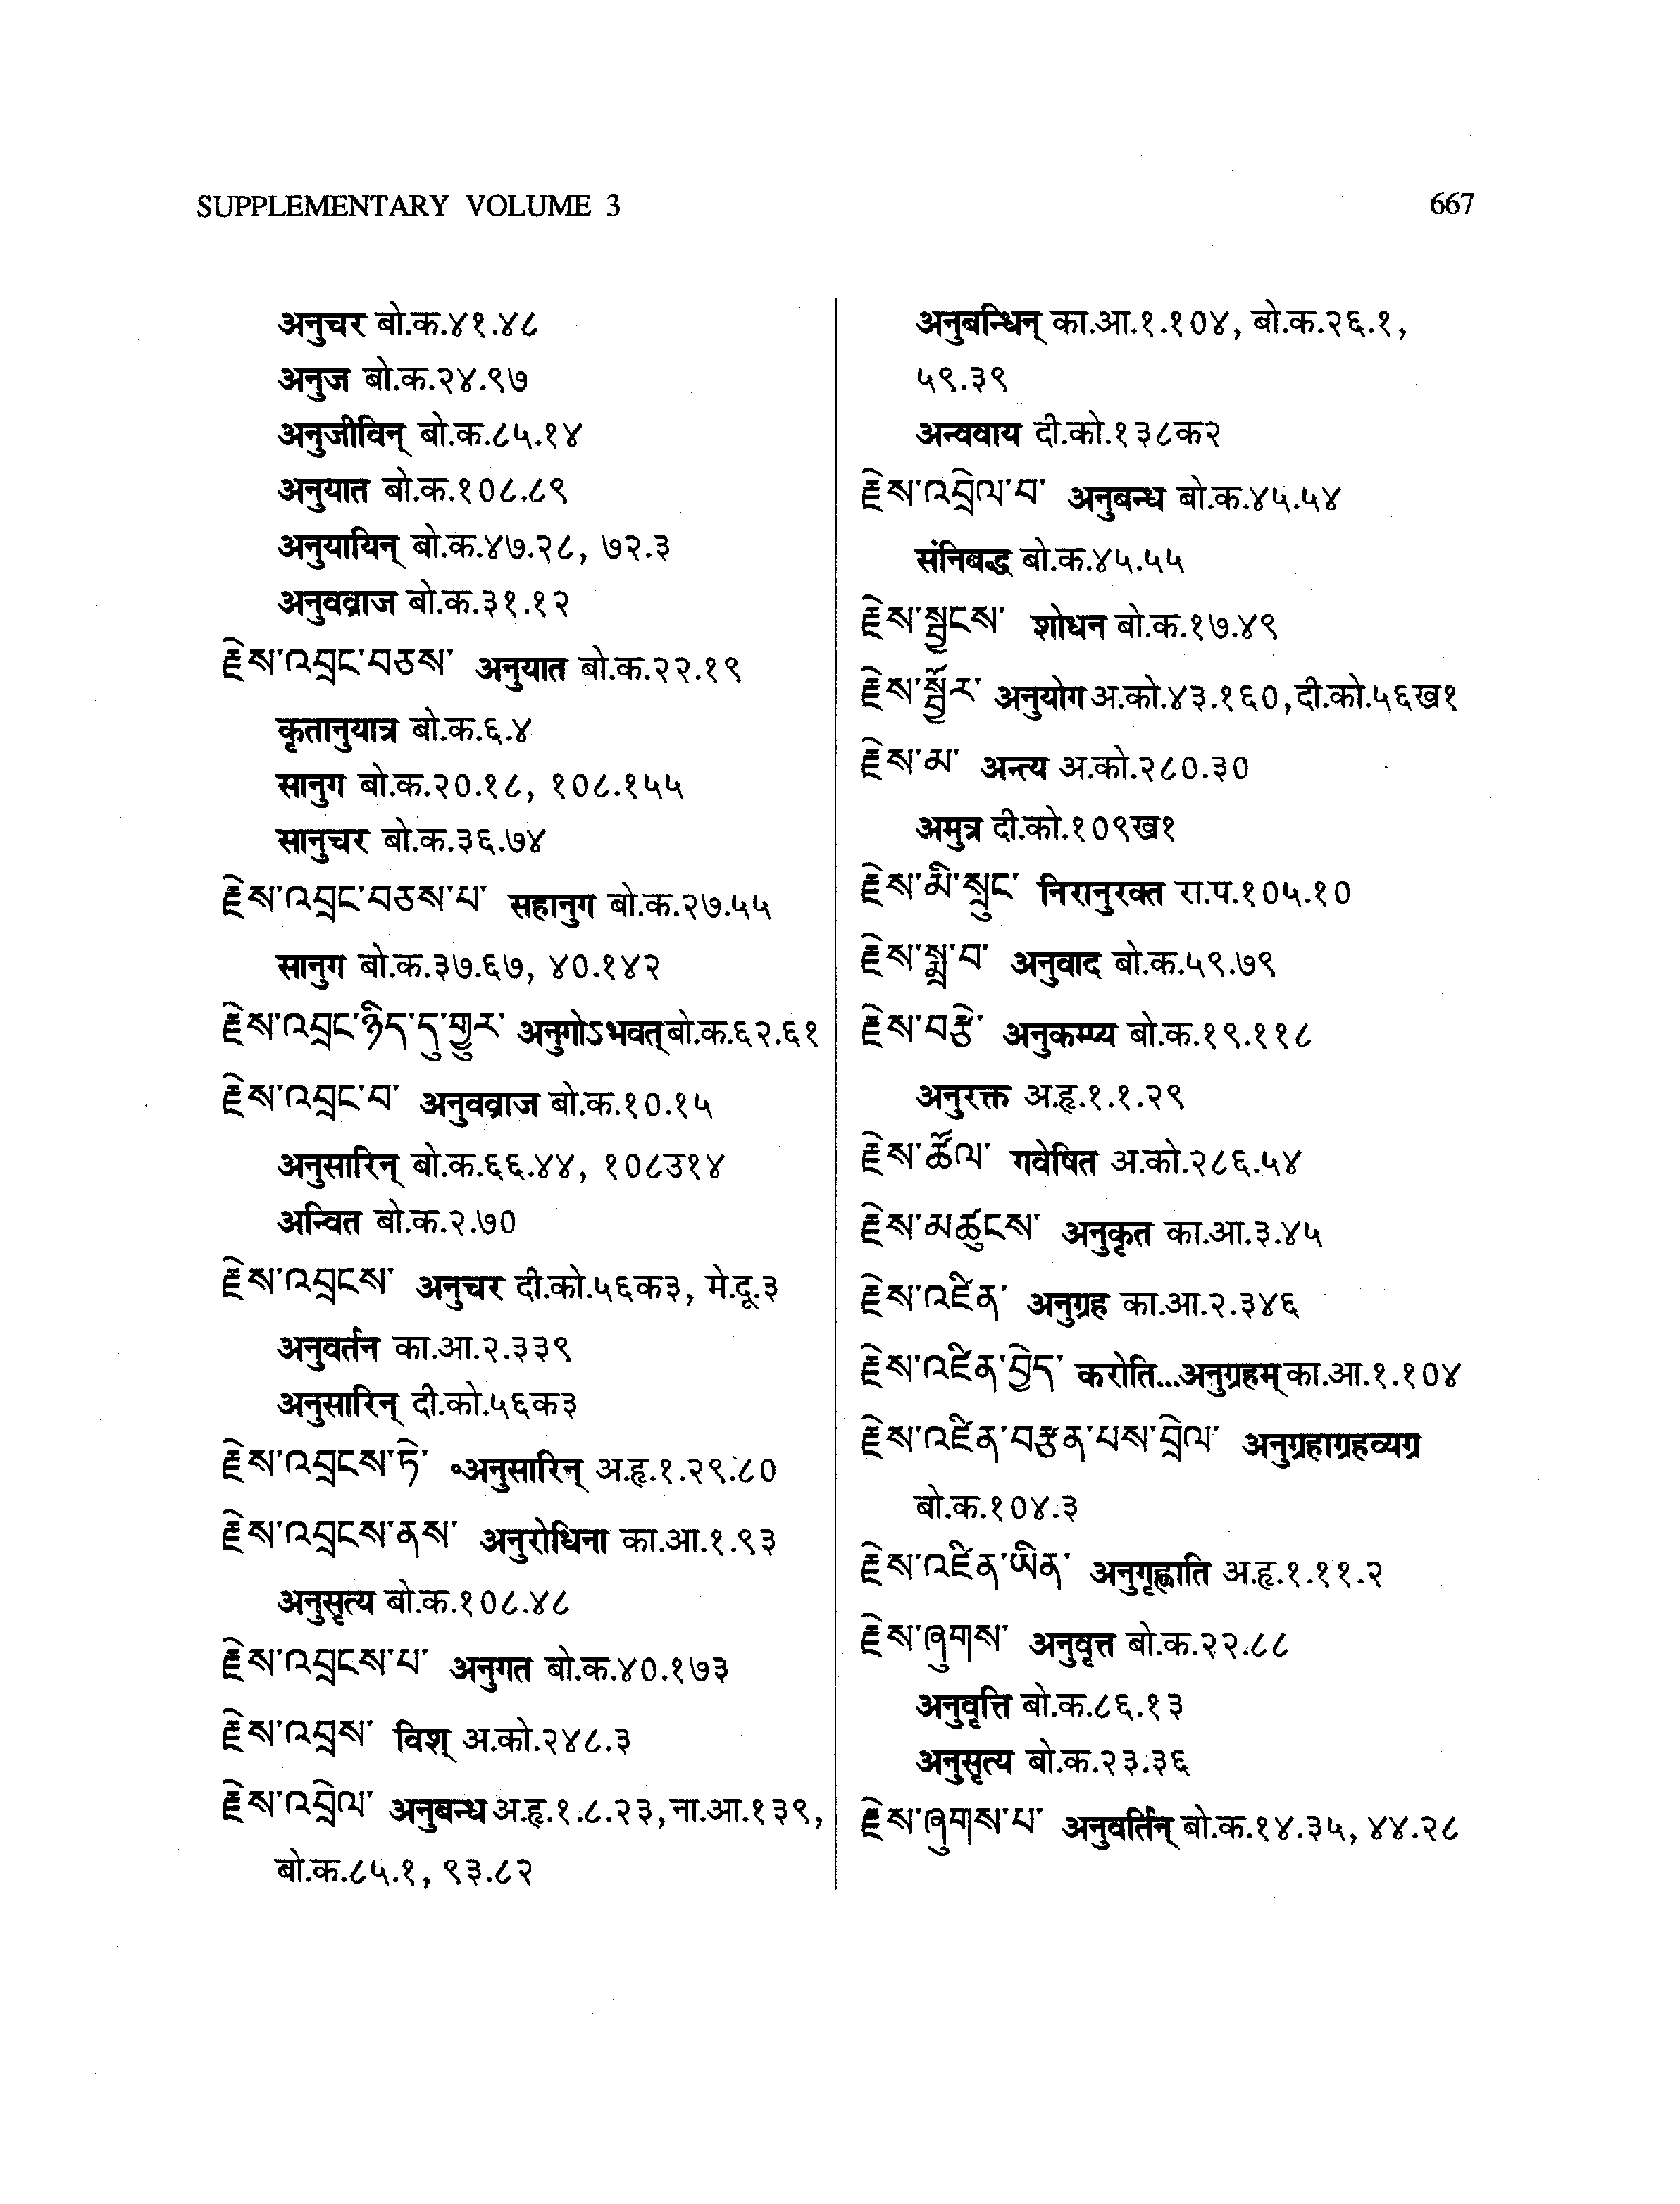 SUPPLEMENTARY VOLUME 3
667
अनुचर बो.क.४१.४८
अनुज बो.क.२४.९७
अनुजीविन् बो.क.८५.१४
अनुयात बो.क.१०८.८९
अनुयायिन् बो.क.४७.२८, ७२.३
अनुवव्राज बो.क.३१.१२
རྗེས་འབྲང་བཅས་ अनुयात बो.क.२२.१९
कृतानुयात्र बो.क.६.४
सानुग बो.क.२०.१८, १०८.१५५
सानुचर बो.क.३६.७४
རྗེས་འབྲང་བཅས་པ་ सहानुग बो.क.२७.५५
सानुग बो.क.३७.६७, ४०.१४२
རྗེས་འབྲང་ཉིད་དུ་གྱུར་ अनुगोऽभवत् बो.क.६२.६१
རྗེས་འབྲང་བ་ अनुवव्राज बो.क.१०.१५
अनुसारिन् बो.क.६६.४४, १०८उ१४
अन्वित बो.क.२.७०
རྗེས་འབྲངས་ अनुचर दी.को.५६क३, मे.दू.३
अनुवर्तन का.आ.२.३३९
अनुसारिन् दी.को.५६क३
རྗེས་འབྲངས་ཏེ་ ॰अनुसारिन् अ.हृ.१.२९.८०
རྗེས་འབྲངས་ནས་ अनुरोधिना का.आ.१.९३
अनुसृत्य बो.क.१०८.४८
རྗེས་འབྲངས་པ་ अनुगत बो.क.४०.१७३
རྗེས་འབྲས་ विश् अ.को.२४८.३
རྗེས་འབྲེལ་ अनुबन्ध अ.हृ.१.८.२३, ना.आ.१३९,
बो.क.८५.१, ९३.८२
अनुबन्धिन् का.आ.१.१०४, बो.क.२६.१,
५९.३९
अन्ववाय दी.को.१३८क२
རྗེས་འབྲེལ་བ་ अनुबन्ध बो.क.४५.५४
संनिबद्ध बो.क.४५.५५
རྗེས་སྦྱངས་ शोधन बो.क.१७.४९
རྗེས་སྦྱོར་ अनुयोग अ.को.४३.१६०, दी.को.५६ख१
རྗེས་མ་ अन्त्य अ.को.२८०.३०
अमुत्र दी.को.१०९ख१
རྗེས་མི་སྲུང་ निरानुरक्त रा.प.१०५.१०
རྗེས་སྨྲ་བ་ अनुवाद बो.क.५९.७९
རྗེས་བརྩེ་ अनुकम्प्य बो.क.१९.११८
अनुरक्त अ.हृ.१.१.२९
རྗེས་ཚོལ་ गवेषित अ.को.२८६.५४
རྗེས་མཚུངས་ अनुकृत का.आ.३.४५
རྗེས་འཛིན་ अनुग्रह का.आ.२.३४६
རྗེས་འཛིན་བྱེད་ करोति...अनुग्रहम् का.आ.१.१०४
རྗེས་འཛིན་བརྩན་པས་བྲེལ་ अनुग्रहाग्रहव्यग्र
बो.क.१०४.३
རྗེས་འཛིན་ཡིན་ अनुगृह्णाति अ.हृ.१.११.२
རྗེས་ཞུགས་ अनुवृत्त बो.क.२२.८८
अनुवृत्ति बो.क.८६.१३
अनुसृत्य बो.क.२३.३६
རྗེས་ཞུགས་པ་ अनुवर्तिन् बो.क.१४.३५, ४४.२८